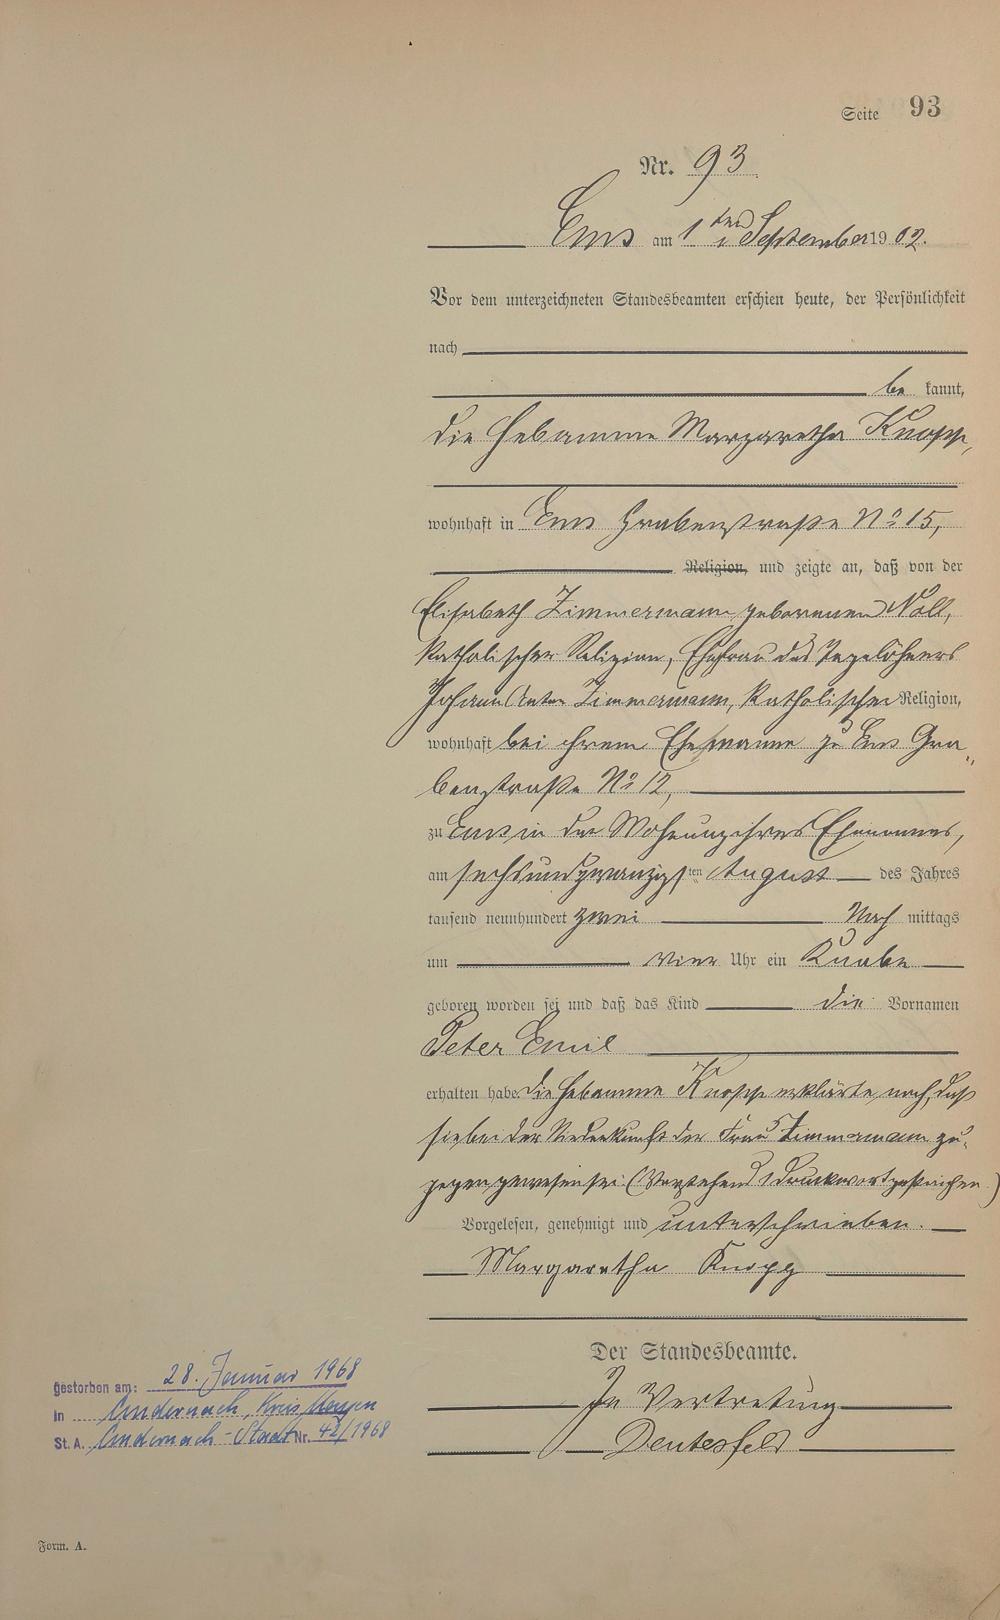 Seite 93
Nr. 93
Ems am 1ten September 1902.
Vor dem unterzeichneten Standesbeamten erschien heute, der Persönlichkeit
nach
be kannt,
die Hebamme Margaretha Knopp,
wohnhaft in Ems Grabenstraße No 15,
Religion, und zeigte an, daß von der
Elisabeth Zimmermann geborenen Noll,
katholischer Religion, Ehefrau des Tagelöhners
Johann Anton Zimmermann, katholischer Religion,
wohnhaft bei ihrem Ehemanne zu Ems Gra„
benstraße No 12,
zu Ems in der Wohnung ihres Ehemannes,
am sechsundzwanzigsten August des Jahres
tausend neunhundert zwei Nach mittags
um vier Uhr ein Knabe
geboren worden sei und daß das Kind die Vornamen
Peter Emil
erhalten habe. Die Hebamme Knopp erklärte noch, daß
sie bei der Niederkunft der Frau Zimmermann zu-
gegen gewesen sei (Vorstehend 1 Druckwort gestrichen)
Vorgelesen, genehmigt und unterschrieben.
Margaretha Knopp
Der Standesbeamte.
In Vertretung
gestorben am: 28. Januar 1968
in Andernach, Kreis Mayen
St. A. Andernach-Stadt Nr. 42/1968
Form. A.